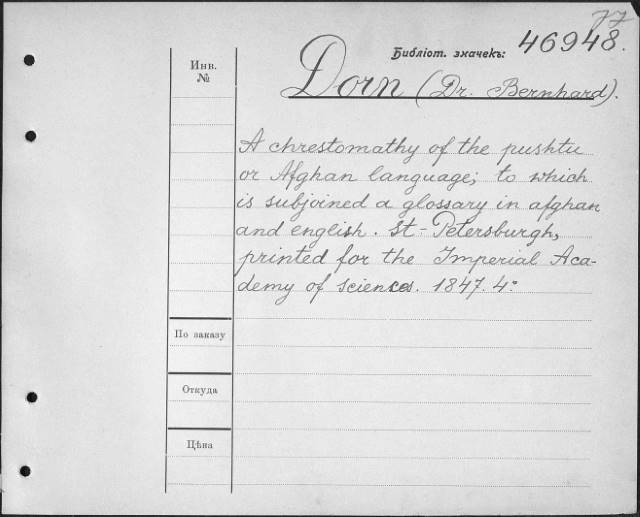 77
Библіот. значекъ: 46948.
Инв.
№
Dorn (Dr. Bernhard).
A chrestomathy of the pushtu
or Afghan language; to which
is subjoined a glossary in afghan
and english. St-Petersburgh,
printed for the Imperial Aca-
demy of sciences. 1847. 4:
По заказу
Откуда
Цѣна